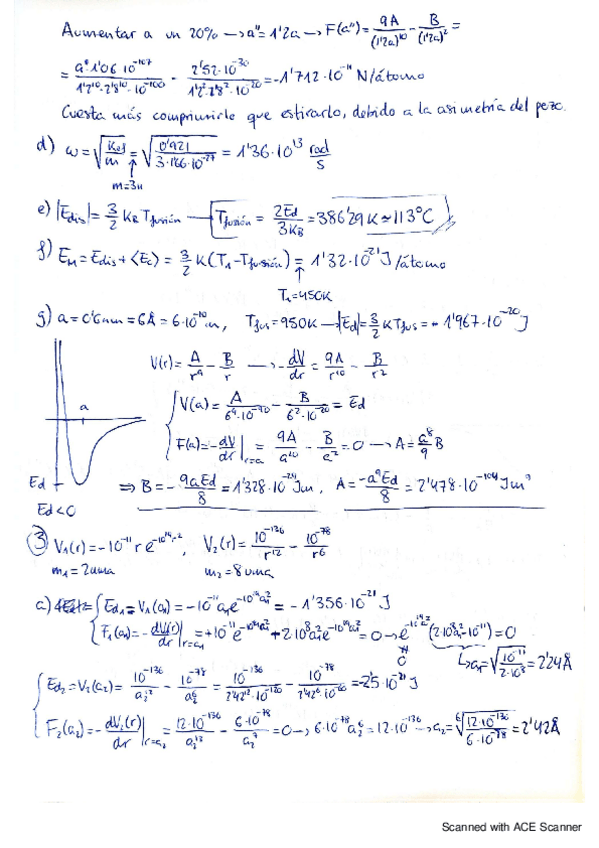 Aumentar a un 20% → a'' = 1'2a → F(a'') = 9A/(1'2a)^10 - B/(1'2a)^2 =
= a^8 1'06·10^-107/1'2^10·2'8^10·10^-100 - 2'52·10^-30/1'2^2·2'8^2·10^-20 = -1'712·10^-11 N/átomo
Cuesta más comprimirle que estirarlo, debido a la asimetría del pozo.
d) ω = √(Kef/m) = √(0'921/3·1'66·10^-27) = 1'36·10^13 rad/s
m=3u
e) |Edis| = 3/2 KB Tfusión → Tfusión = 2Ed/3KB = 386'29 K ≃ 113°C
f) EM = Edis + <Ec> = 3/2 K(T1 - Tfusión) = 1'32·10^-21 J/átomo
T1=450K
g) a = 0'6nm = 6Å = 6·10^-10 m, Tfus = 950K → |Ed| = 3/2 K Tfus = - 1'967·10^-20 J
V(r) = A/r^9 - B/r → -dV/dr = 9A/r^10 - B/r^2
a
V(a) = A/6^9·10^-90 - B/6^2·10^-20 = Ed
F(a) = -dV/dr|r=a = 9A/a^10 - B/a^2 = 0 → A = a^8/9 B
Ed
Ed<0
⇒ B = -9aEd/8 = 1'328·10^-29 Jm, A = -a^9Ed/8 = 2'478·10^-104 Jm^9
3) V1(r) = -10^-11 r e^-10^19 r^2, V2(r) = 10^-136/r^12 - 10^-78/r^6
m1 = 2uma
m2 = 8uma
a) Ed1 = V1(a1) = -10^-11 a1 e^-10^19 a1^2 = -1'356·10^-21 J
F1(a1) = -dV1(r)/dr|r=a1 = +10^-11 e^-10^19 a1^2 + 2·10^8 a1^2 e^-10^19 a1^2 = 0 → e^-10^19 a1^2 (2·10^8 a1^2 - 10^-11) = 0
0
↳ a1 = √(10^-11/2·10^8) = 2'24Å
Ed2 = V2(a2) = 10^-136/a2^12 - 10^-78/a2^6 = 10^-136/2'42^12·10^-120 - 10^-78/2'42^6·10^-60 = -2'5·10^-21 J
F2(a2) = -dV2(r)/dr|r=a2 = 12·10^-136/a2^13 - 6·10^-78/a2^7 = 0 → 6·10^-78 a2^6 = 12·10^-136 → a2 = ⁶√(12·10^-136/6·10^-78) = 2'42Å
Scanned with ACE Scanner